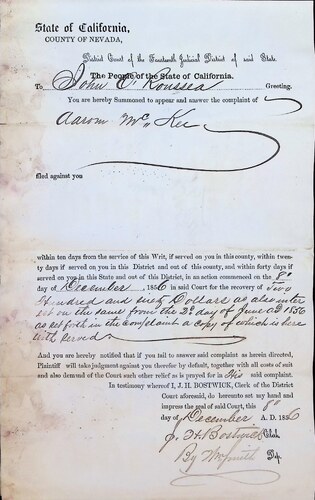 State of California,
COUNTY OF NEVADA,
District Court of the Fourteenth Judicial District of said State
The People of the State of California.
To John C Roussea Greeting.
You are hereby Summoned to appear and answer the complaint of
Aarom Mc Kee
filed against you
within ten days from the service of this Writ, if served on you in this county, within twen-
ty days if served on you in this District and out of this county, and within forty days if
served on you in this State and out of this District, in an action commenced on the 8th
day of December , 1856 in said Court for the recovery of Two
Hundred and sixty Dollars as also inter
est on the same from the 2d day of June AD 1856
as set forth in the complaint a copy of which is here
with served
And you are hereby notified that if you fail to answer said complaint as herein directed,
Plaintiff will take judgment against you therefor by default, together with all costs of suit
and also demand of the Court such other relief as is prayed for in His said complaint.
In testimony whereof I, J. H. BOSTWICK, Clerk of the District
Court aforesaid, do hereunto set my hand and
impress the seal of said Court, this 8th
day of December A. D. 1856
J. H. Bostwick Clerk
By Wm Smith Dep.